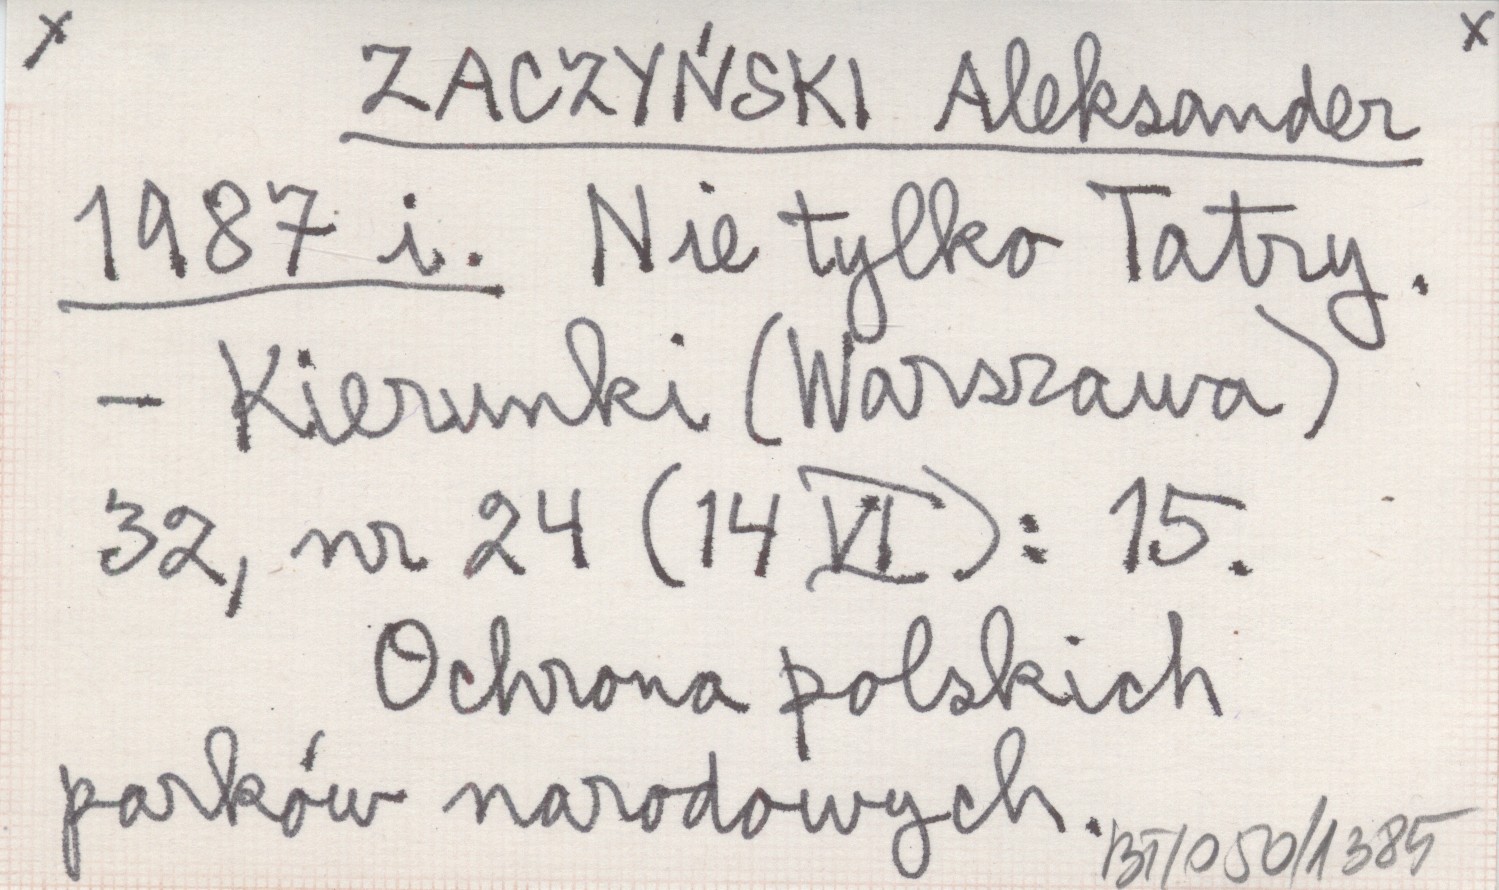 x x
ZACZYŃSKI Aleksander
1987 i. Nie tylko Tatry.
– Kierunki (Warszawa)
32, nr 24 (14 VI): 15.
Ochrona polskich
parków narodowych.
BT/050/1385